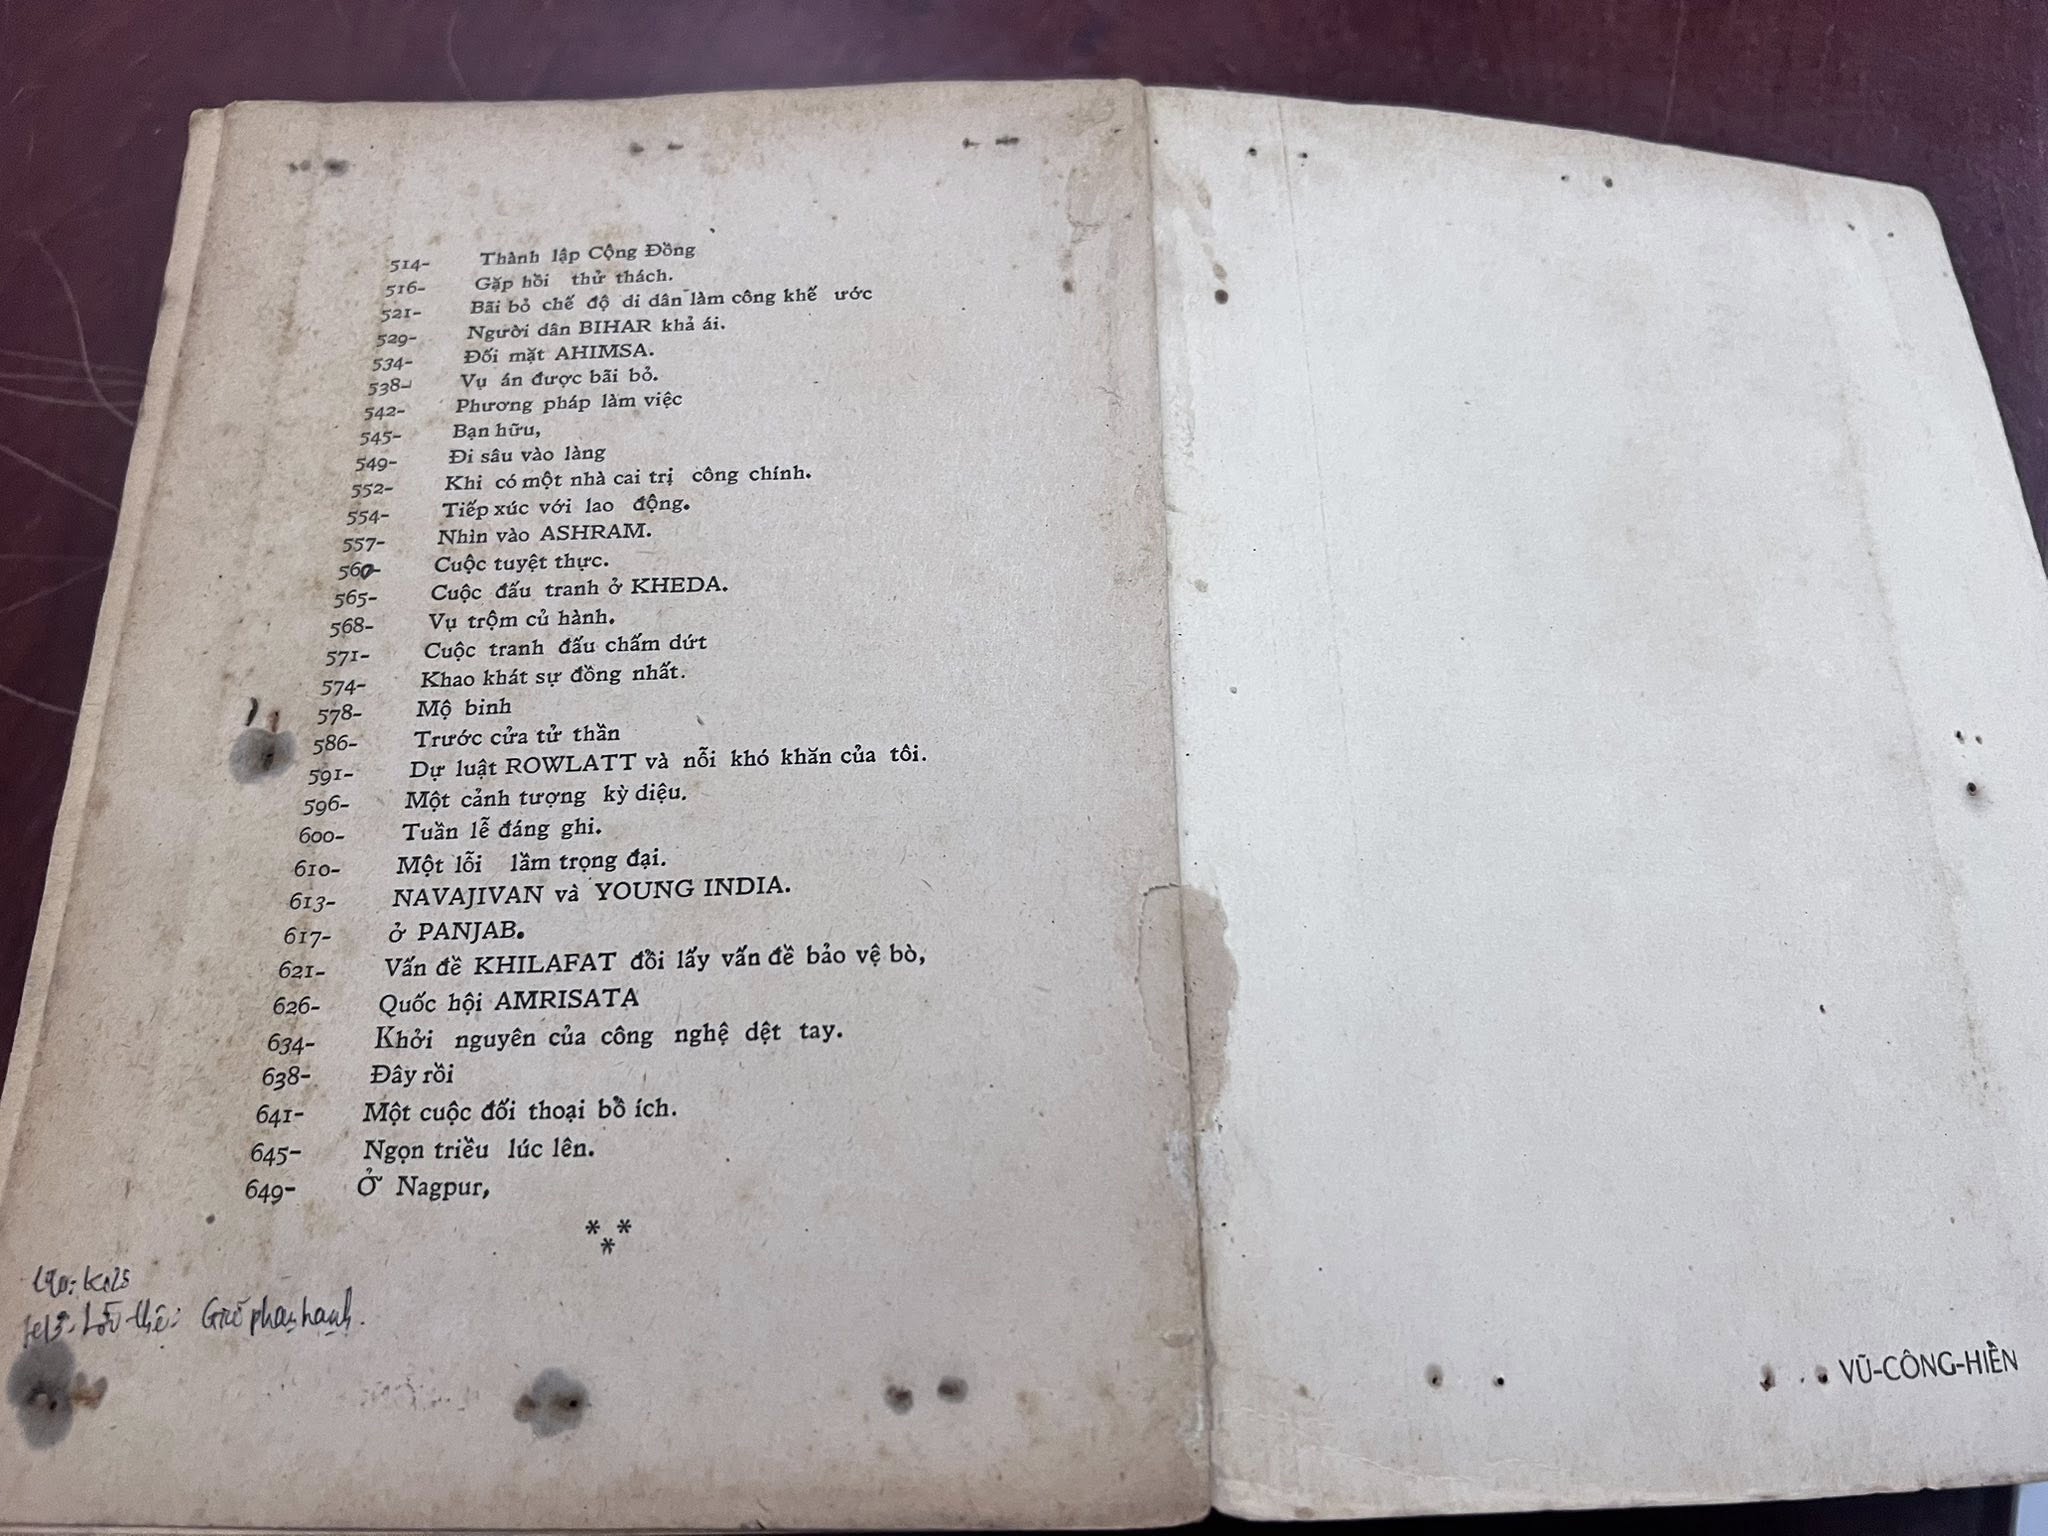 514- Thành lập Cộng Đồng
516- Gặp hồi thử thách.
521- Bãi bỏ chế độ di dân làm công khế ước
529- Người dân BIHAR khả ái.
534- Đối mặt AHIMSA.
538- Vụ án được bãi bỏ.
542- Phương pháp làm việc
545- Bạn hữu,
549- Đi sâu vào làng
552- Khi có một nhà cai trị công chính.
554- Tiếp xúc với lao động.
557- Nhìn vào ASHRAM.
560- Cuộc tuyệt thực.
565- Cuộc đấu tranh ở KHEDA.
568- Vụ trộm củ hành.
571- Cuộc tranh đấu chấm dứt
574- Khao khát sự đồng nhất.
578- Mộ binh
586- Trước cửa tử thần
591- Dự luật ROWLATT và nỗi khó khăn của tôi.
596- Một cảnh tượng kỳ diệu.
600- Tuần lễ đáng ghi.
610- Một lỗi lầm trọng đại.
613- NAVAJIVAN và YOUNG INDIA.
617- ở PANJAB.
621- Vấn đề KHILAFAT đổi lấy vấn đề bảo vệ bò,
626- Quốc hội AMRISATA
634- Khởi nguyên của công nghệ dệt tay.
638- Đây rồi
641- Một cuộc đối thoại bổ ích.
645- Ngọn triều lúc lên.
649- Ở Nagpur,
* *
*
VŨ-CÔNG-HIỀN